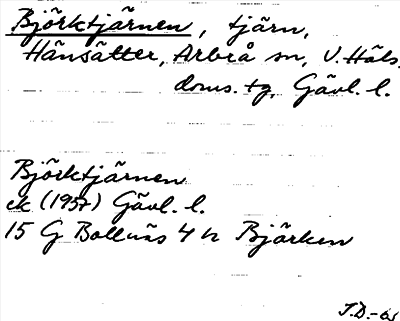 Björktjärnen, tjärn,
Hänsätter, Arbrå sn, V. Häls.
doms. tg, Gävl. l.
Björktjärnen
ek (1957) Gävl. l.
15 G Bollnäs 4 h Björken
J.D.-65